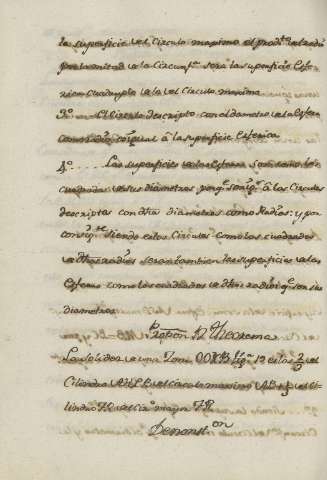 la superficie del Circulo maximo el prod.to del radio
por la mitad de la Circunf.a será la superficie Esfe-
rica quadrupla de la del Circulo maximo
3.o El Circulo descripto con el diametro de la Esfera
como radio es igual á la superficie Esferica
4.o Las superficies de las Esferas son como los
cuadrados de sus diametros porq.e son ig.s á los Circulos
descriptos con dhos diametros como Radios: y por
consig.te siendo estos Circulos como los cuadrados
de dhos radios seran tambien las superficies de las
Esferas como los cuadrados de dhos radios q.e son sus
diametros
Theorema
La solidez de una Zona fig.a 19 es los 2/3 del
Cilindro del Circulo maximo
lindro del Cir.o mayor
Demonst.on